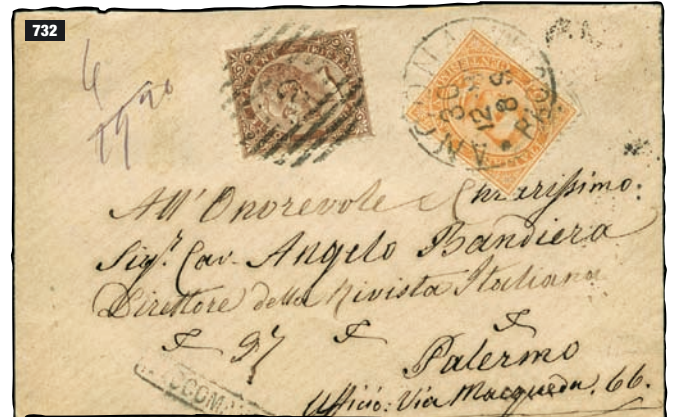 732
4
ANCONA
30
12
8
All' Onorevole e Chiarissimo.
Sigr. Cav. Angelo Bandiera
Direttore della Rivista Italiana
97
Palermo
Ufficio: Via Macqueda. 66.